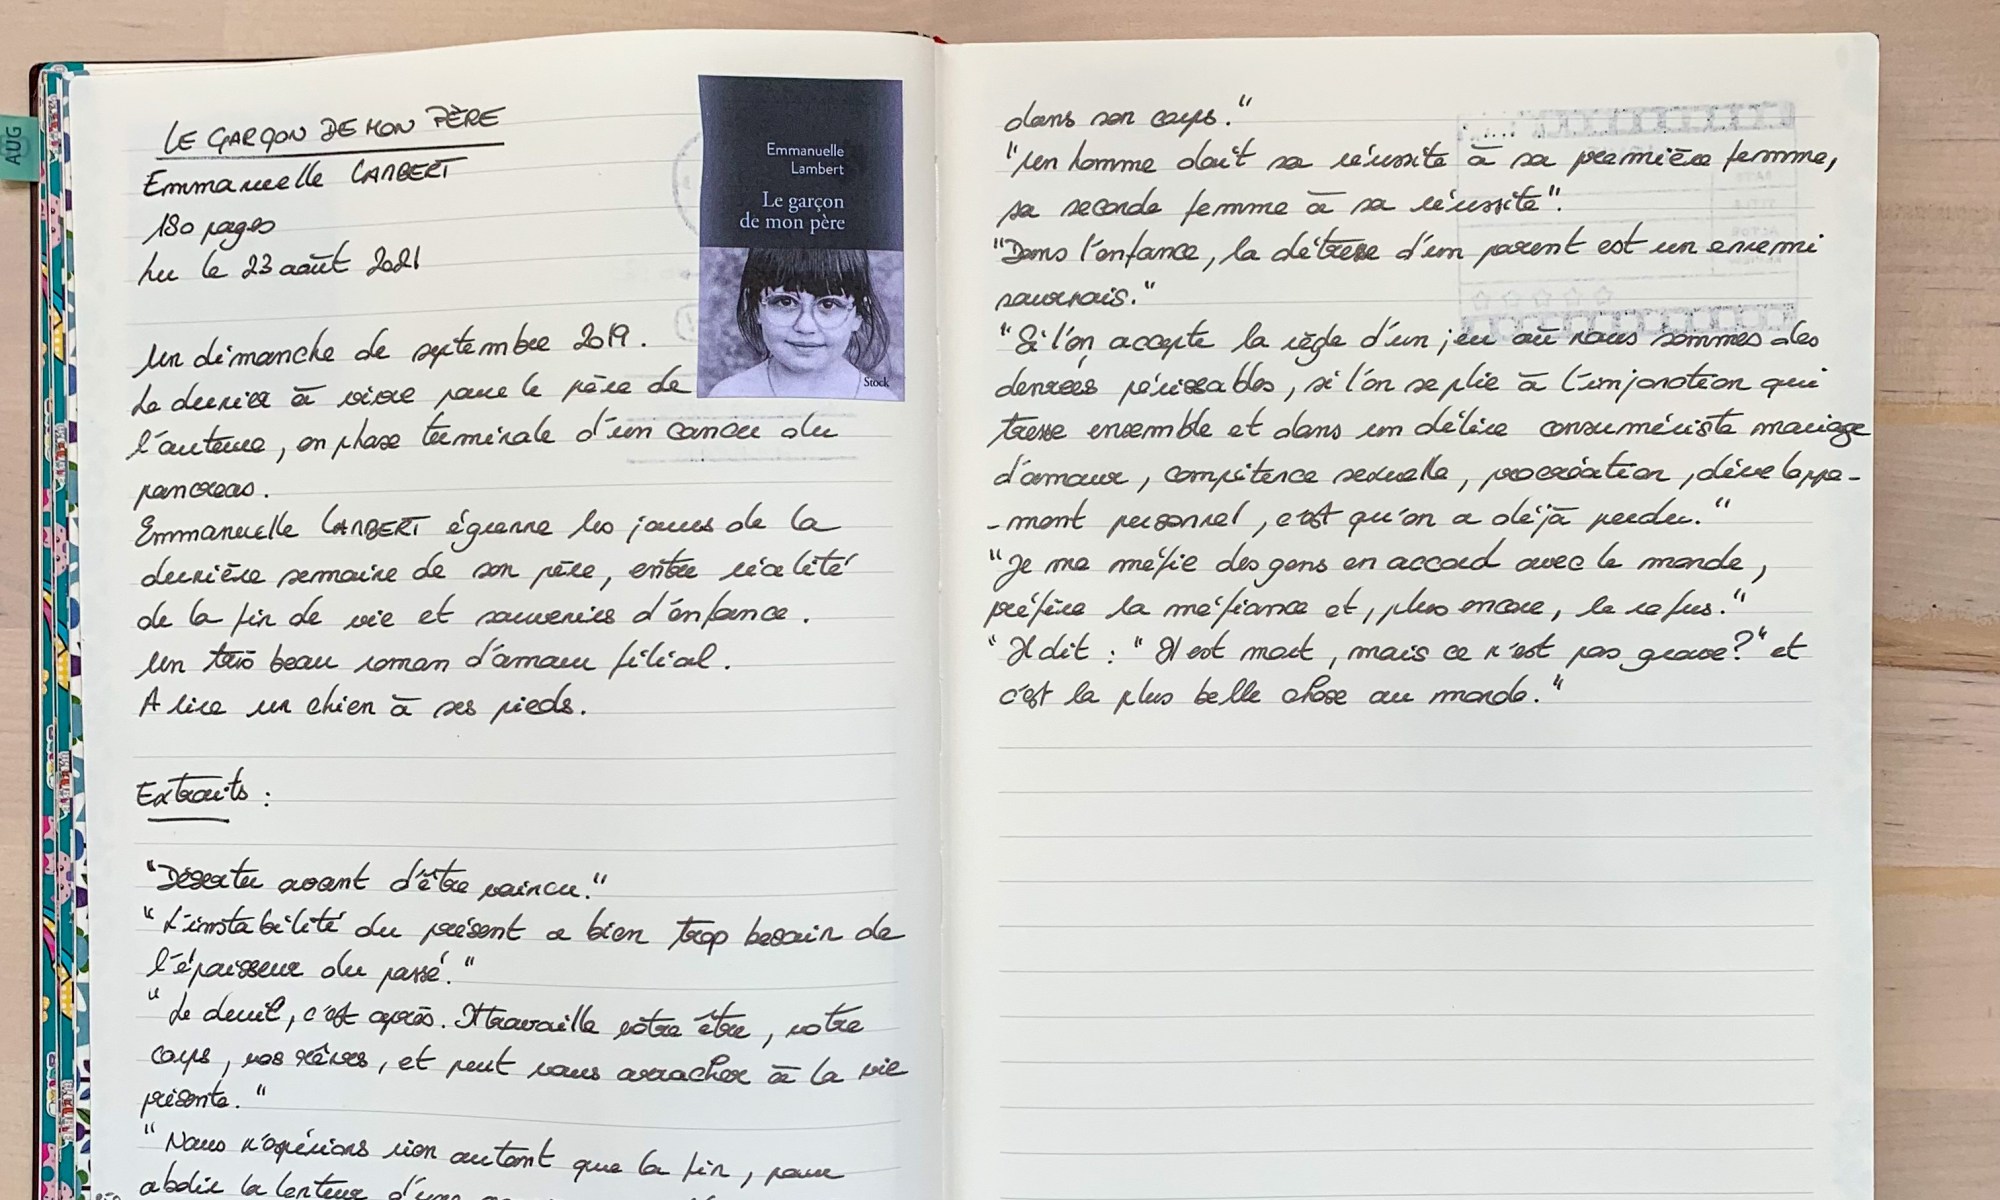 AUG
LE GARÇON DE MON PÈRE
Emmanuelle LAMBERT
180 pages
Lu le 23 août 2021
Emmanuelle
Lambert
Le garçon
de mon père
Stock
Un dimanche de septembre 2019.
Le dernier à vivre pour le père de
l'auteure, en phase terminale d'un cancer du
pancréas.
Emmanuelle LAMBERT égrenne les jours de la
dernière semaine de son père, entre réalité
de la fin de vie et souvenirs d'enfance.
Un très beau roman d'amour filial.
A lire un chien à ses pieds.
Extraits :
"Déserter avant d'être vaincu."
"L'instabilité du présent a bien trop besoin de
l'épaisseur du passé."
"Le deuil, c'est après. Il travaille votre être, votre
corps, vos rêves, et peut vous arracher à la vie
présente."
"Nous n'espérions rien autant que la fin, pour
abolir la lenteur d'une
dans son corps."
"Un homme doit sa réussite à sa première femme,
sa seconde femme à sa réussite".
"Dans l'enfance, la détresse d'un parent est un ennemi
sournois."
"Si l'on accepte la règle d'un jeu où nous sommes des
denrées périssables, si l'on se plie à l'injonction qui
tresse ensemble et dans un délire consumériste mariage
d'amour, compétence sexuelle, procréation, développe-
-ment personnel, c'est qu'on a déjà perdu."
"Je me méfie des gens en accord avec le monde,
préfère la méfiance et, plus encore, le refus."
"Il dit : "Il est mort, mais ce n'est pas grave?" et
c'est la plus belle chose au monde."